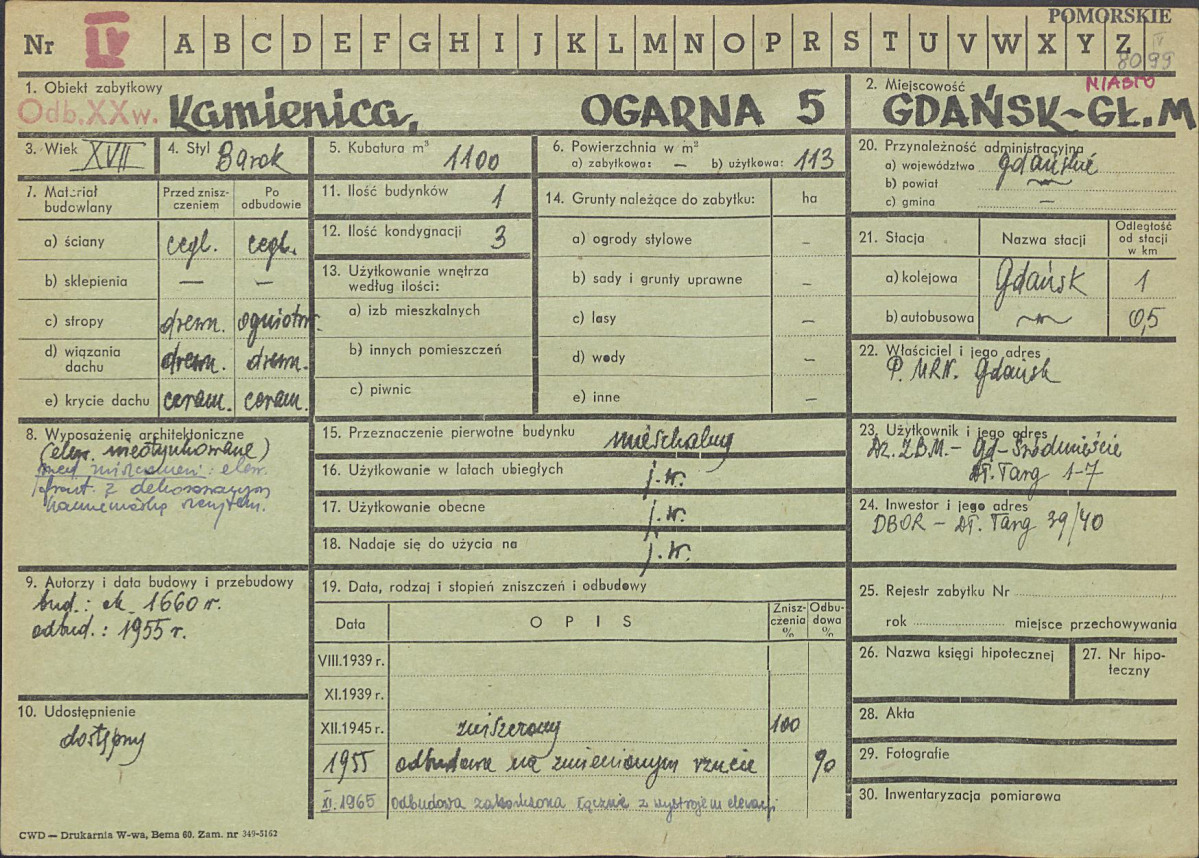 POMORSKIE
Nr IV A B C D E F G H I J K L M N O P R S T U V W X Y Z
V
8099
1. Obiekt zabytkowy
Odb. XX w. Kamienica, OGARNA 5
2. Miejscowość MIASTO
GDAŃSK-GŁ.M
3. Wiek XVII
4. Styl Barok
5. Kubatura m³ 1100
6. Powierzchnia w m²
a) zabytkowa: — b) użytkowa: 113
7. Materiał budowlany
Przed zniszczeniem
Po odbudowie
a) ściany cegł. cegł.
b) sklepienia — —
c) stropy drewn. ogniotrw.
d) wiązania dachu drewn. drewn.
e) krycie dachu ceram. ceram.
8. Wyposażenie architektoniczne
(elew. nieotynkowane)
przed zniszczeniem: elew.
front. z dekoracyjnym
kamieniarką szczytem.
9. Autorzy i data budowy i przebudowy
bud.: ok. 1660 r.
odbud.: 1955 r.
10. Udostępnienie
dostępny
11. Ilość budynków 1
12. Ilość kondygnacji 3
13. Użytkowanie wnętrza
według ilości:
a) izb mieszkalnych
b) innych pomieszczeń
c) piwnic
14. Grunty należące do zabytku: ha
a) ogrody stylowe —
b) sady i grunty uprawne —
c) lasy —
d) wody —
e) inne —
15. Przeznaczenie pierwotne budynku mieszkalny
16. Użytkowanie w latach ubiegłych j.w.
17. Użytkowanie obecne j.w.
18. Nadaje się do użycia na j.w.
19. Data, rodzaj i stopień zniszczeń i odbudowy
Data OPIS Zniszczenia % Odbudowa %
VIII.1939 r.
XI.1939 r.
XII.1945 r. zniszczony 100
1955 odbudowa na zmienionym rzucie 90
XI.1965 odbudowa zakończona łącznie z wystrojem elewacji
20. Przynależność administracyjna
a) województwo gdańskie
b) powiat
c) gmina —
21. Stacja Nazwa stacji Odległość od stacji w km
a) kolejowa Gdańsk 1
b) autobusowa 0,5
22. Właściciel i jego adres
P. MRN. Gdańsk
23. Użytkownik i jego adres
Dz. Z.B.M. - Gd-Śródmieście
Dł. Targ 1-7
24. Inwestor i jego adres
DBOR - Dł. Targ 39/40
25. Rejestr zabytku Nr
rok miejsce przechowywania
26. Nazwa księgi hipotecznej
27. Nr hipoteczny
28. Akta
29. Fotografie
30. Inwentaryzacja pomiarowa
CWD — Drukarnia W-wa, Bema 60. Zam. nr 349-5162